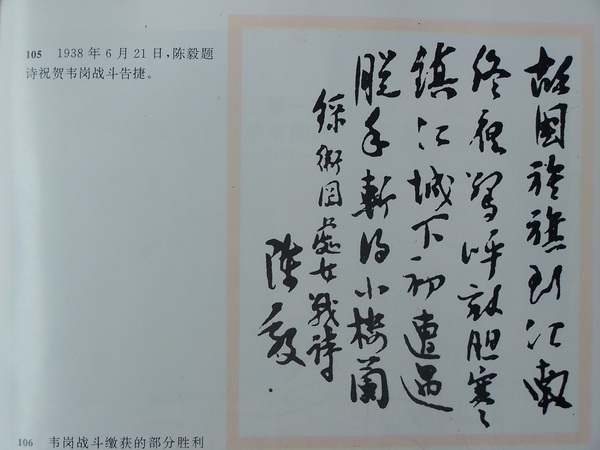 105 1938年6月21日,陈毅题
诗祝贺韦岗战斗告捷。
故國旌旗到江南
終夜驚呼敵胆寒
鎮江城下初遭遇
脱手斬得小樓蘭
錄衛岡處女戰詩
陳毅
106 韦岗战斗缴获的部分胜利